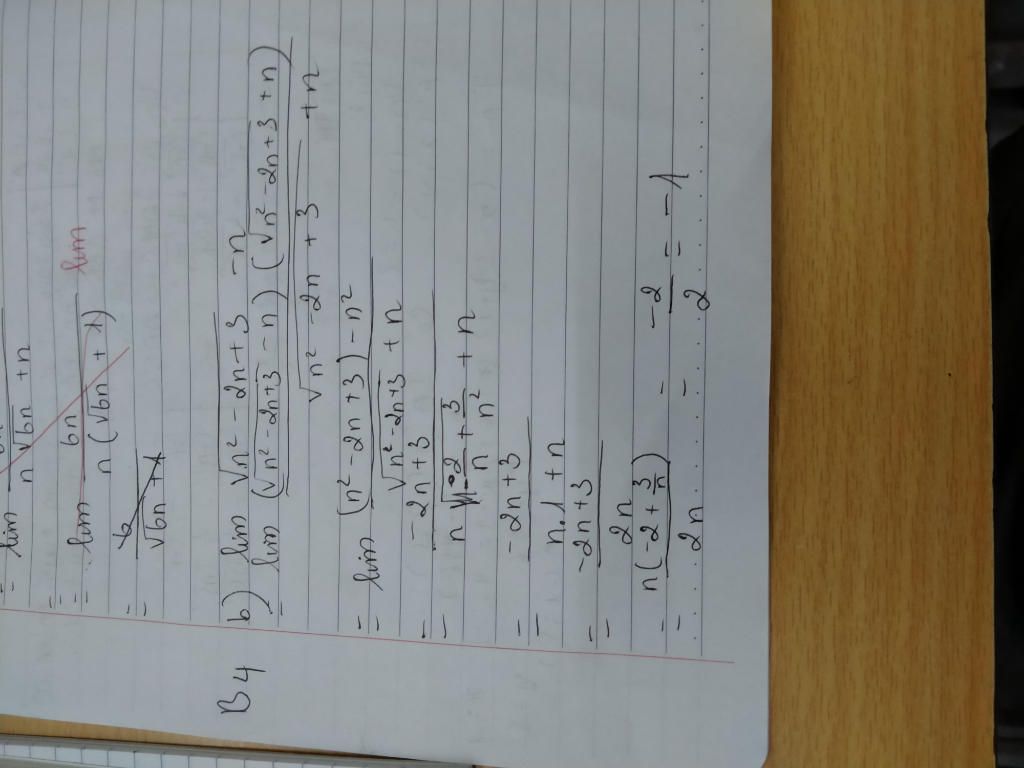 = lim n √6n + n
= lim 6n / n ( √6n + 1 ) lim
= 6 / √6n + 1
B4 b) lim √n² - 2n + 3 - n
= lim (√n² - 2n + 3 - n) (√n² - 2n + 3 + n) / √n² - 2n + 3 + n
= lim (n² - 2n + 3) - n² / √n² - 2n + 3 + n
= -2n + 3 / n √1 - 2/n + 3/n² + n
= -2n + 3 / n.1 + n
= -2n + 3 / 2n
= n(-2 + 3/n) / 2n = -2 / 2 = -1